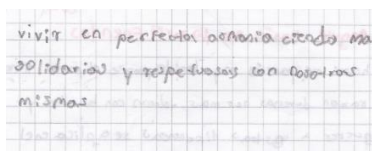 vivir en perfecta armonia ciendo ma
solidarias y respetuosas con nosotras
mismas